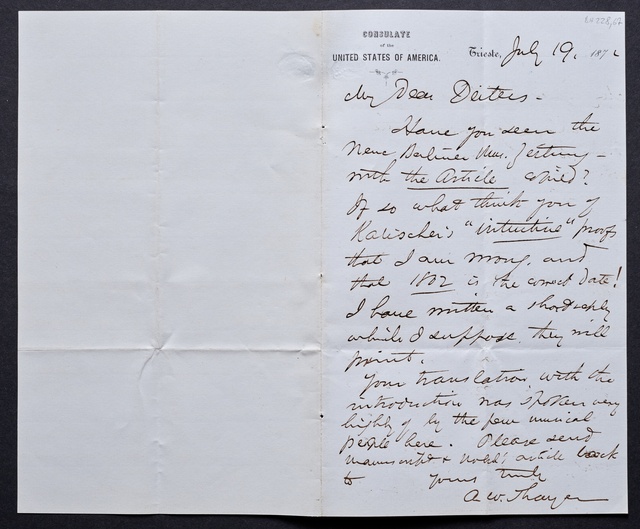 CONSULATE
of the
UNITED STATES OF AMERICA.
Trieste, July 19, 187
My Dear Deiters -
Have you seen the
Neue Berliner Mus. Zeitung -
with the Article copied?
If so what think you of
Kalischer's "intuitive" proofs
that I am wrong, and
that 1802 is the correct date!
I have written a short reply
which I suppose they will
print.
Your translation, with the
introduction was spoken very
highly of by the few musical
people here. Please send
manuscript & article back
to yours truly
A. W. Thayer